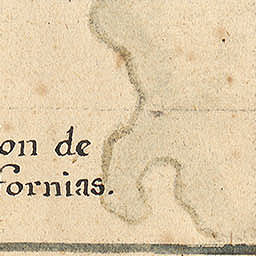 on de
fornias.